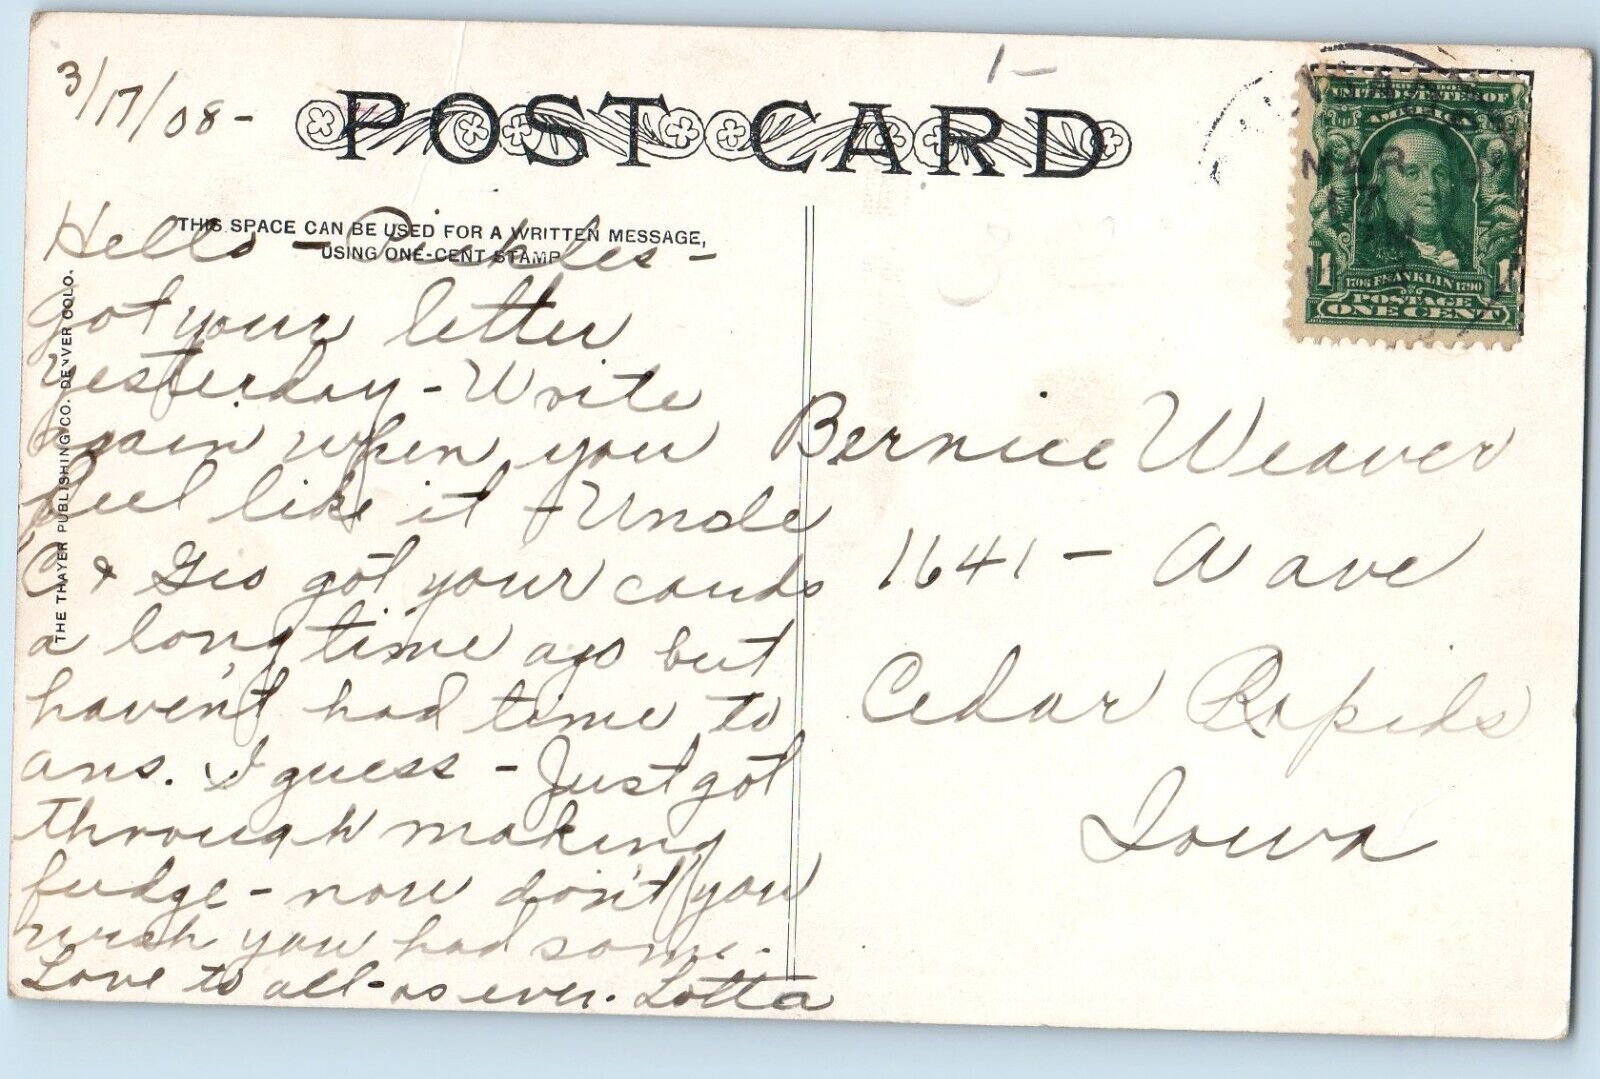 3/17/08-
1-
POST CARD
THIS SPACE CAN BE USED FOR A WRITTEN MESSAGE,
USING ONE-CENT STAMP
THE THAYER PUBLISHING CO. DENVER COLO.
Hello - Pickles -
got your letter
yesterday - Write
again when you
feel like it - Uncle
C & Geo got your cards
a long time ago but
haven't had time to
ans. I guess - Just got
through making
fudge - now don't you
wish you had some.
Love to all - as ever. Lotta
UNITED STATES OF
AMERICA
1706 FRANKLIN 1790
1 1
POSTAGE
ONE CENT
MAR
Bernice Weaver
1641 - A ave
Cedar Rapids
Iowa